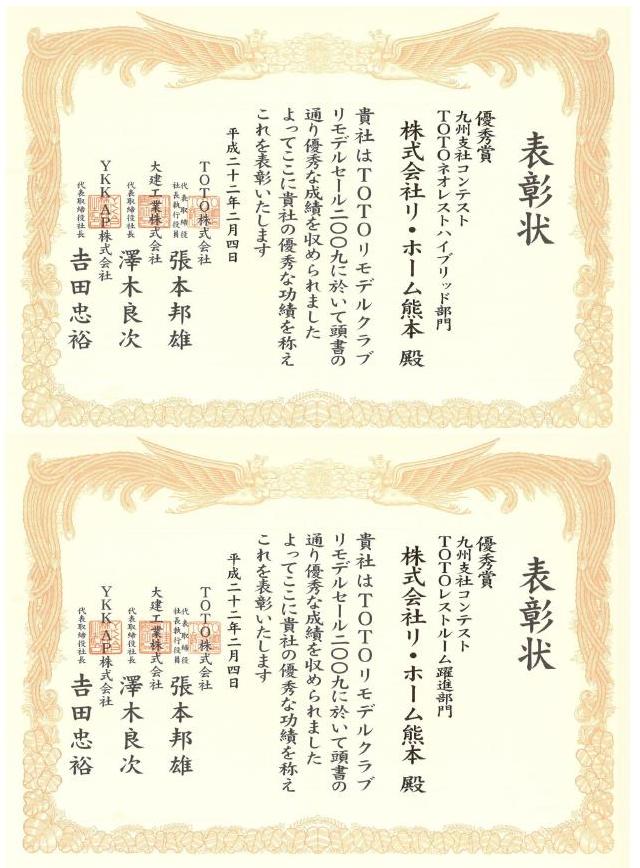 表彰状
優秀賞
九州支社コンテスト
TOTOネオレストハイブリッド部門
株式会社リ・ホーム熊本 殿
貴社はTOTOリモデルクラブ
リモデルセール二〇〇九に於いて頭書の
通り優秀な成績を収められました
よってここに貴社の優秀な功績を称え
これを表彰いたします
平成二十二年二月四日
TOTO株式会社
代表取締役
社長執行役員
張本邦雄
大建工業株式会社
代表取締役社長
澤木良次
YKK AP株式会社
代表取締役社長
吉田忠裕
表彰状
優秀賞
九州支社コンテスト
TOTOレストルーム躍進部門
株式会社リ・ホーム熊本 殿
貴社はTOTOリモデルクラブ
リモデルセール二〇〇九に於いて頭書の
通り優秀な成績を収められました
よってここに貴社の優秀な功績を称え
これを表彰いたします
平成二十二年二月四日
TOTO株式会社
代表取締役
社長執行役員
張本邦雄
大建工業株式会社
代表取締役社長
澤木良次
YKK AP株式会社
代表取締役社長
吉田忠裕